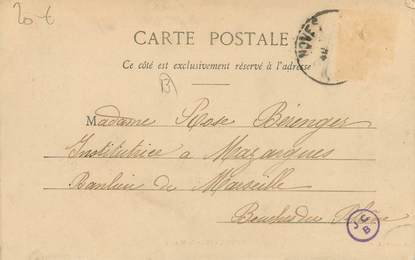 20 €
CARTE POSTALE
NOVES
Ce côté est exclusivement réservé à l'adresse
B
Madame Rose Bérenger
Institutrice a Mazargues
Banlieu de Marseille
Bouches du Rhône
J.C
B